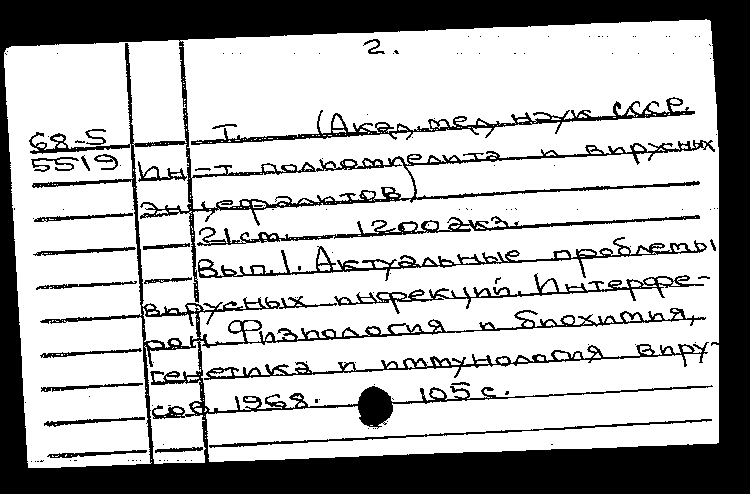 2.
68-5 Т. (Акад. мед. наук СССР.
5519 Ин-т полиомиелита и вирусных
энцефалитов)
21 см. 1200 экз.
Вып. 1. Актуальные проблемы
вирусных инфекций. Интерфе-
рон. Физиология и биохимия,
генетика и иммунология виру-
сов. 1968. 105 с.